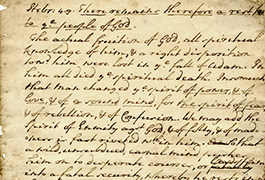 Hebr. 4.9. There remaineth therefore a rest
to ye people of God.
The actual fruition of God, all spiritual
knowledge of him, & a right disposition
to wd him were lost in ye fall of Adam. In
him all died ye spiritual death. Inasmuch
that man changed ye spirit of power, & of
love, & of a sound mind, for the spirit of fear
& of rebellion, & of Confusion. We may add the
spirit of Enmity agst God, & of filthy, & of mad-
ness is fast riveted wth in him. that
a wild, unrenewed, carnal mind,
him on to desperate courses, or
into a fatal security, whereby he is